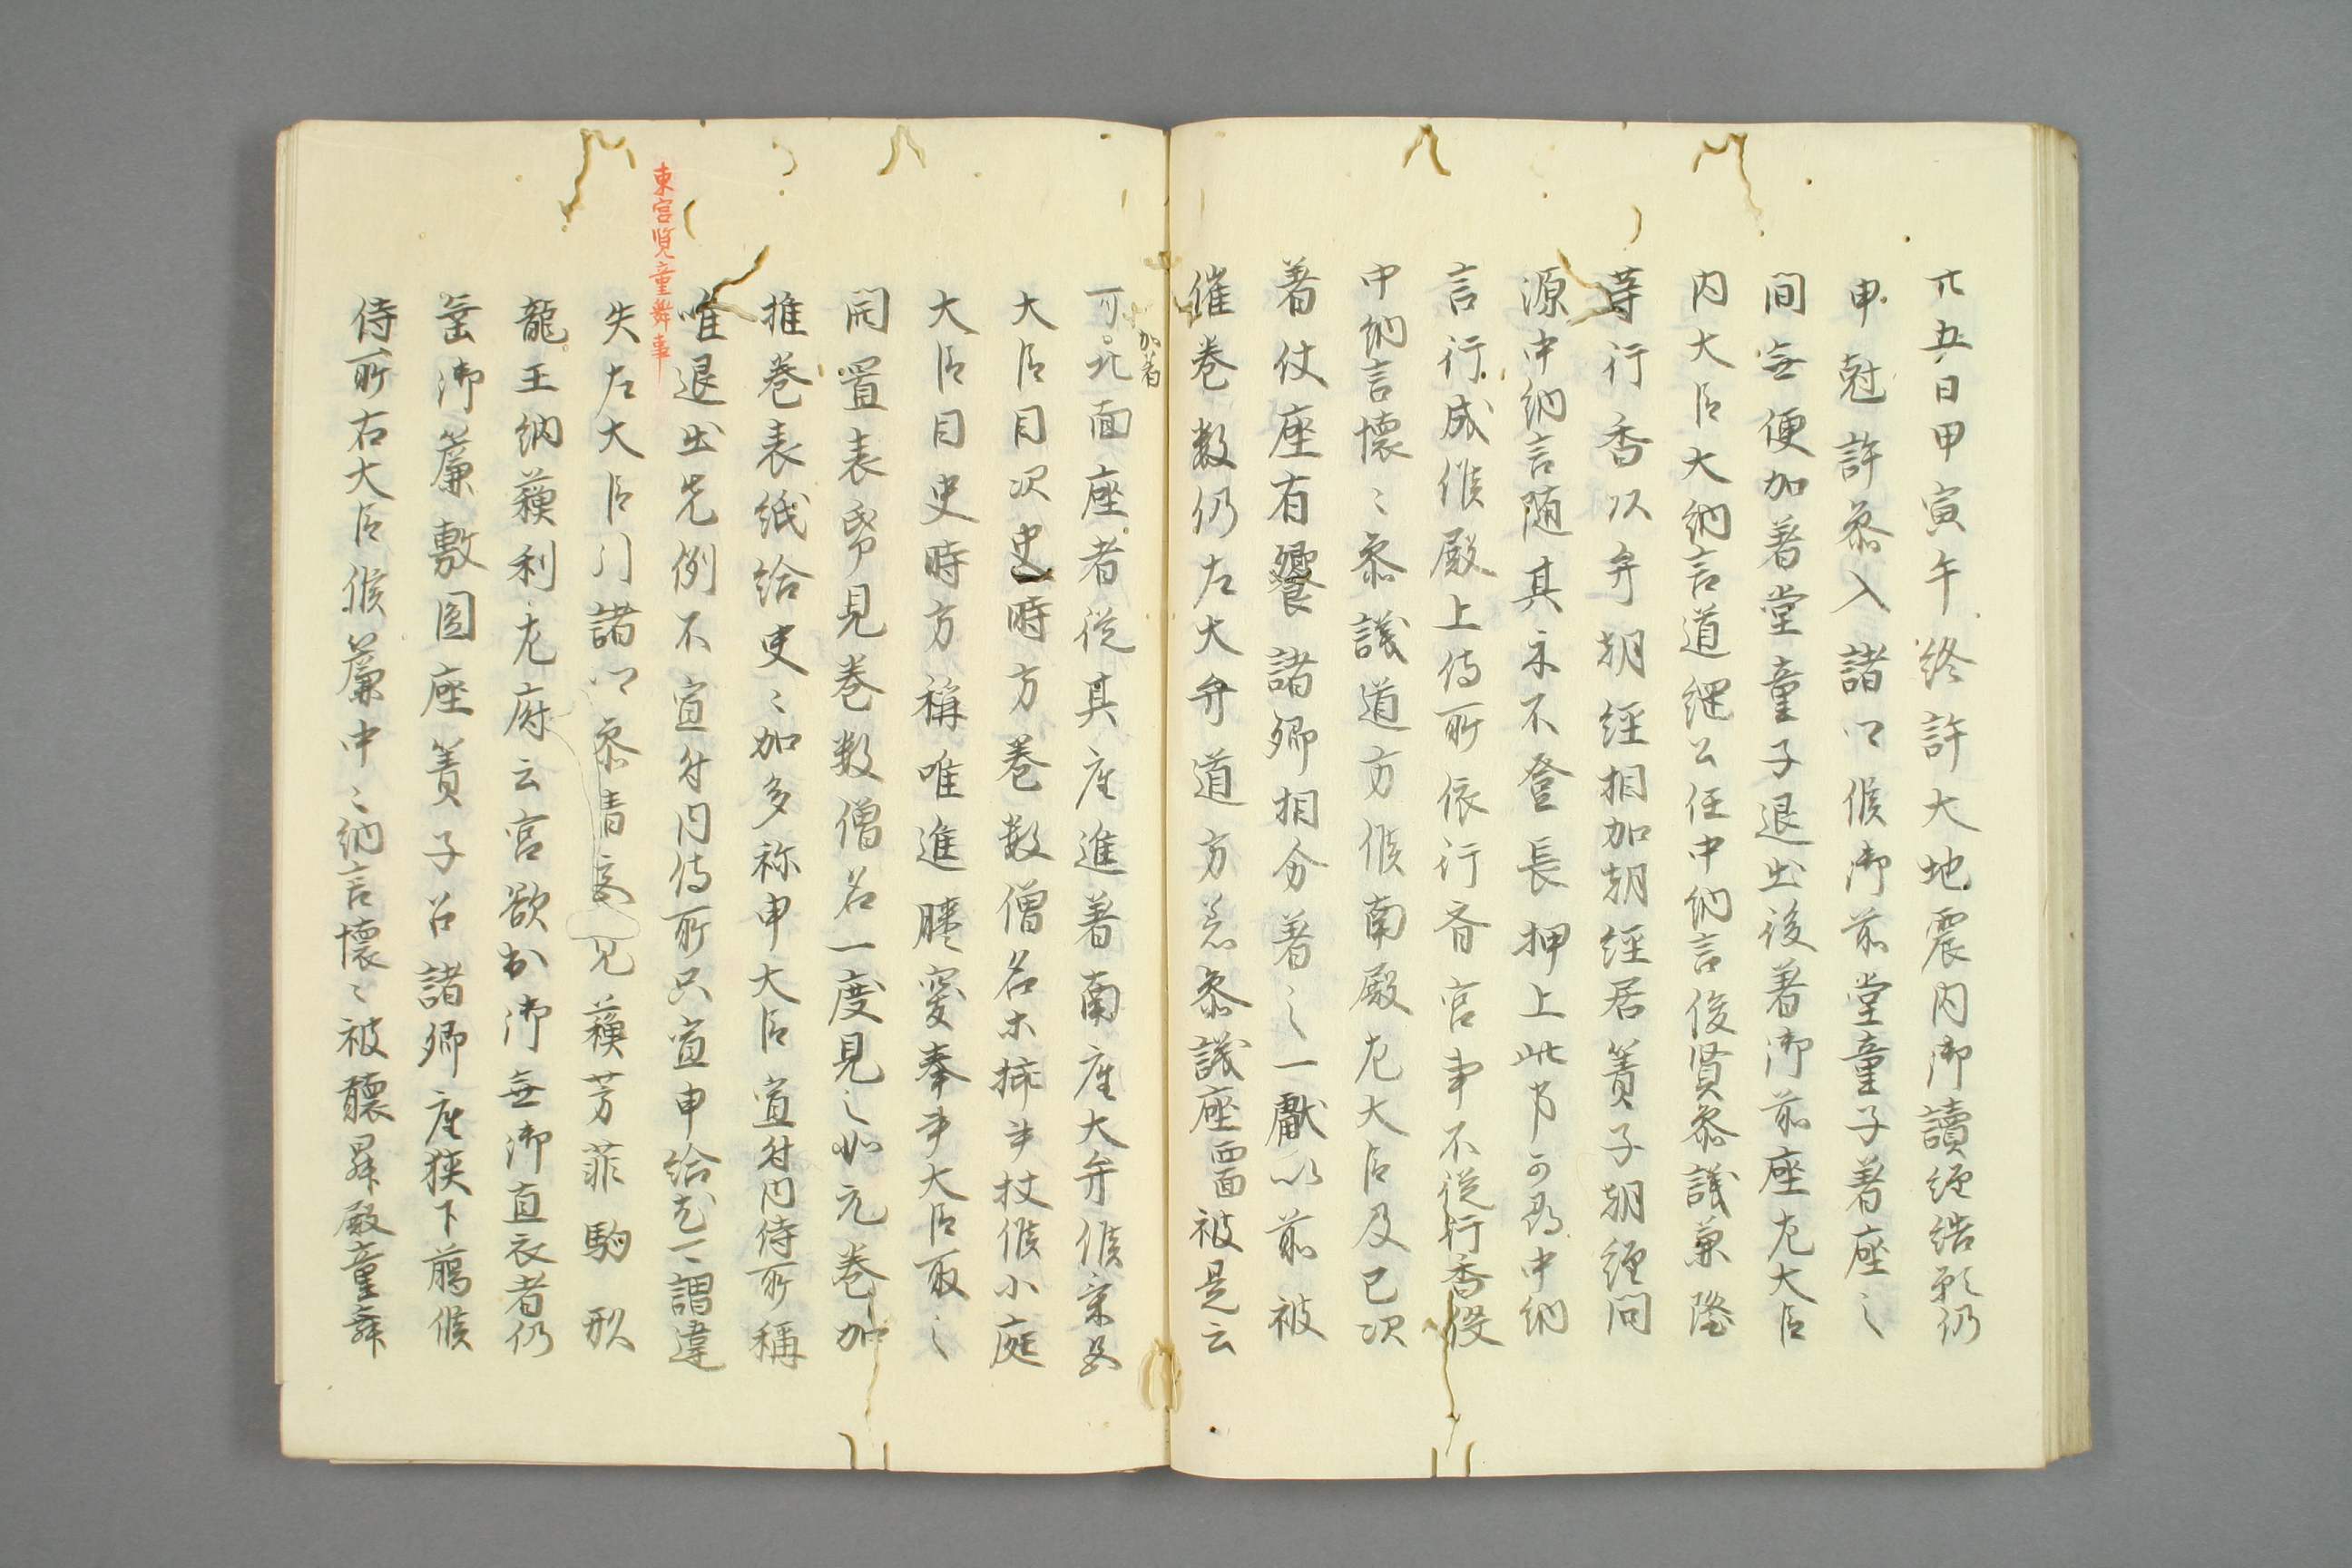 廿五日甲寅午終許大地震内御讀經結願仍
申尅許参入諸卿候御前堂童子著座之
間無便加著堂童子退出後著御前座左大臣
内大臣大納言道綱公任中納言俊賢参議兼隆
等行香以弁朝經相加朝經居簀子朝經問
源中納言随其示不登長押上此間中納
言行成候殿上侍所依行斎宮事不従行香役
中納言懐々参議道方候南殿左大臣及已次
著仗座有饗諸卿相分著之一獻以前被
催巻数仍左大弁道方著参議座西面被是云
可北面座者従其座進著南座大弁候案内
加著
大臣目次史時方巻数僧名等挿書杖候小庭
大臣目史時方稱唯進膝突奉書大臣取之
開置表帋見巻数僧名一度見之如元巻加
推巻表紙給史々加多祢申大臣宣付内侍所稱
唯退出先例不宣付内侍所只宣申給
謂違
東宮覧童舞事
失左大臣以諸卿参青宮見蘓芳菲駒形
龍王納蘓利左府云宮欲出御無御直衣者仍
垂御簾敷圓座簀子召諸卿座狭下﨟候
侍所右大臣候簾中々納言懐々被聽昇殿童舞